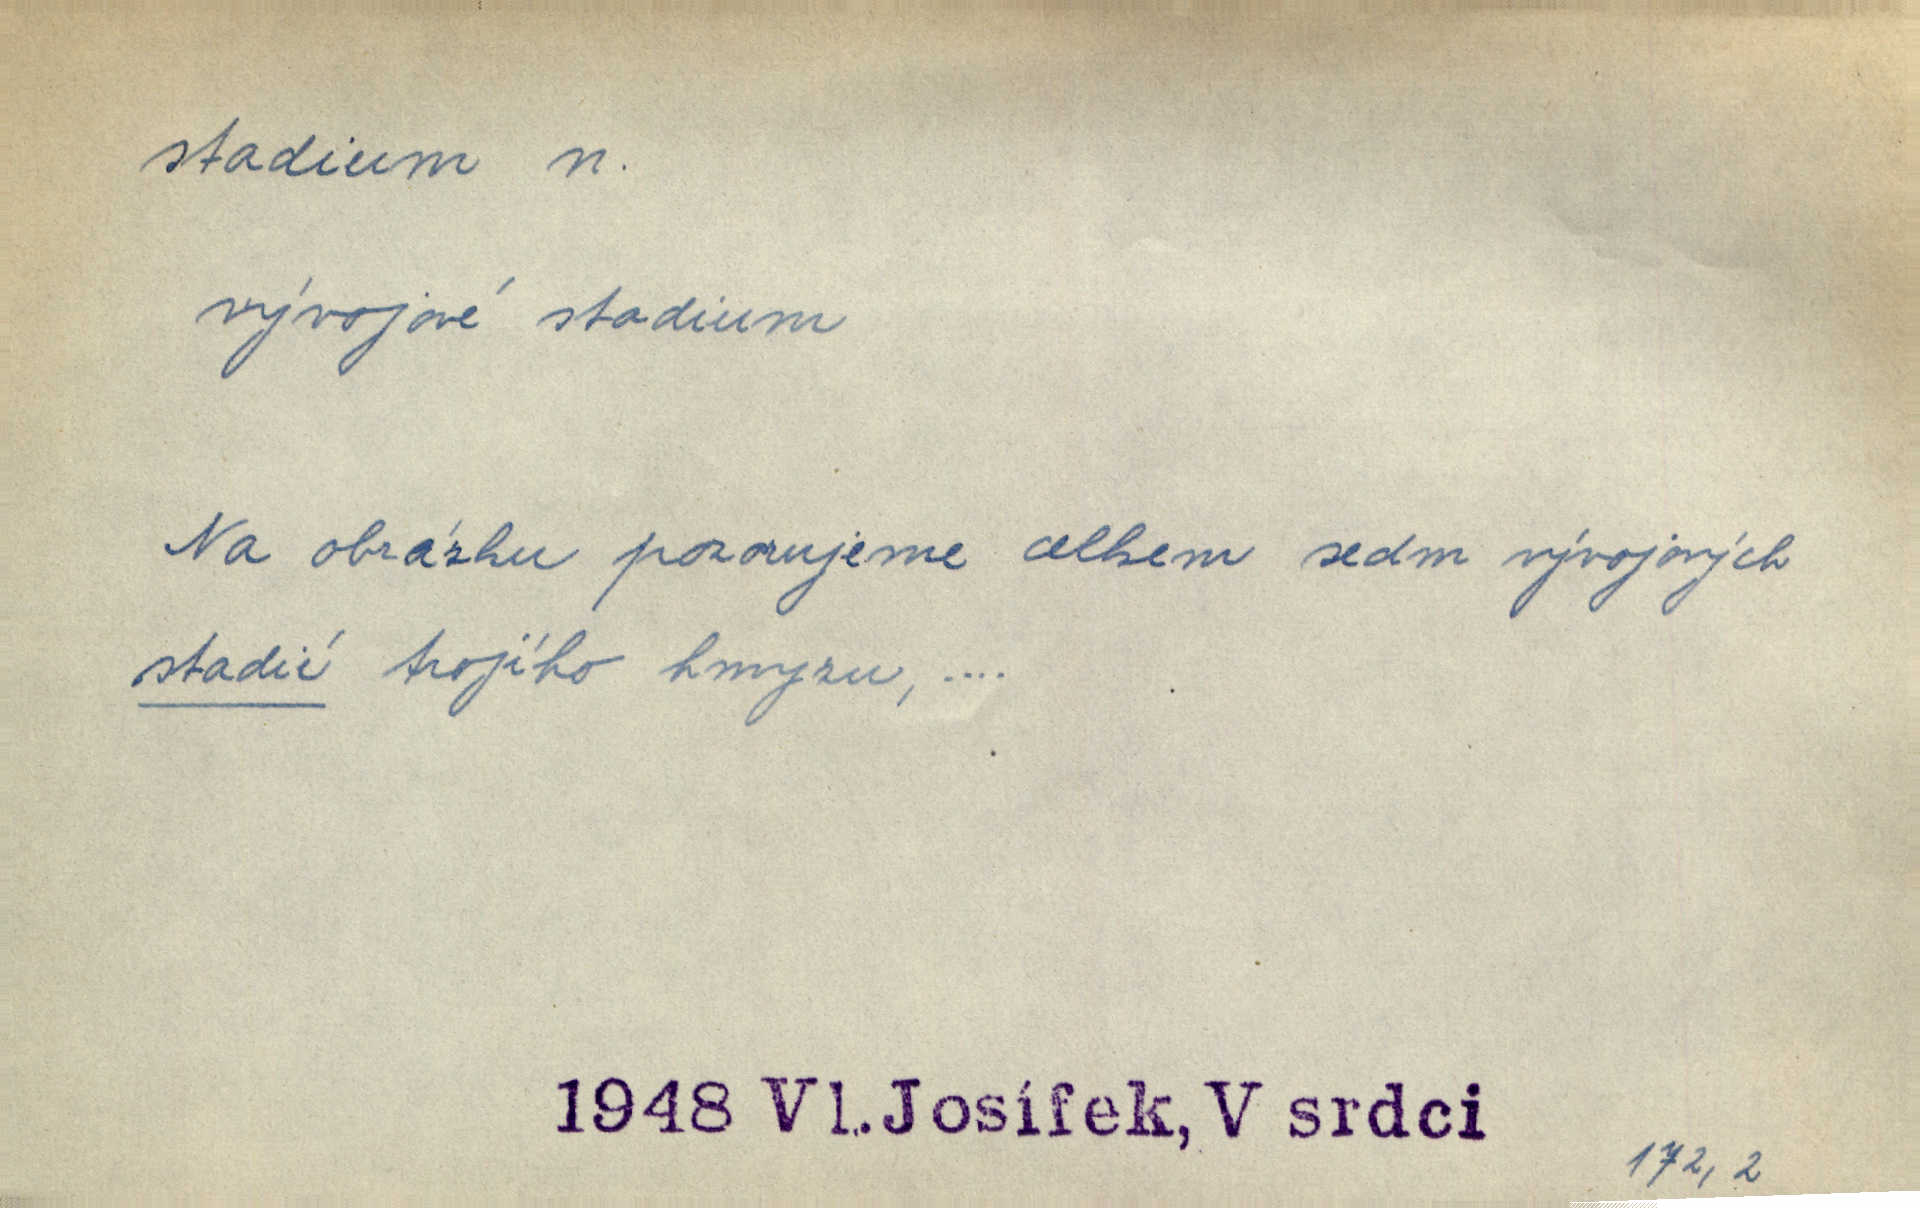 stadium n.
vývojové stadium
Na obrázku pozorujeme celkem sedm vývojových
stadií trojího hmyzu, ....
1948 Vl. Josífek, V srdci
172, 2